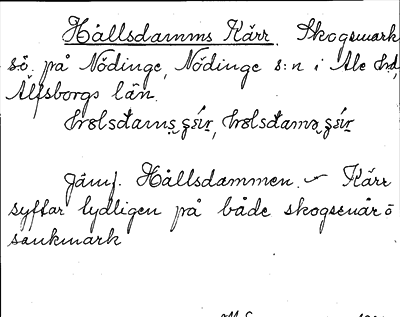 Hållsdamms Kärr. Skogsmark
sö. på Nödinge, Nödinge s:n i Ale hd,
Älfsborgs län.
Jämf. Hållsdammen. – Kärr
syftar tydligen på både skogssnår o
sankmark